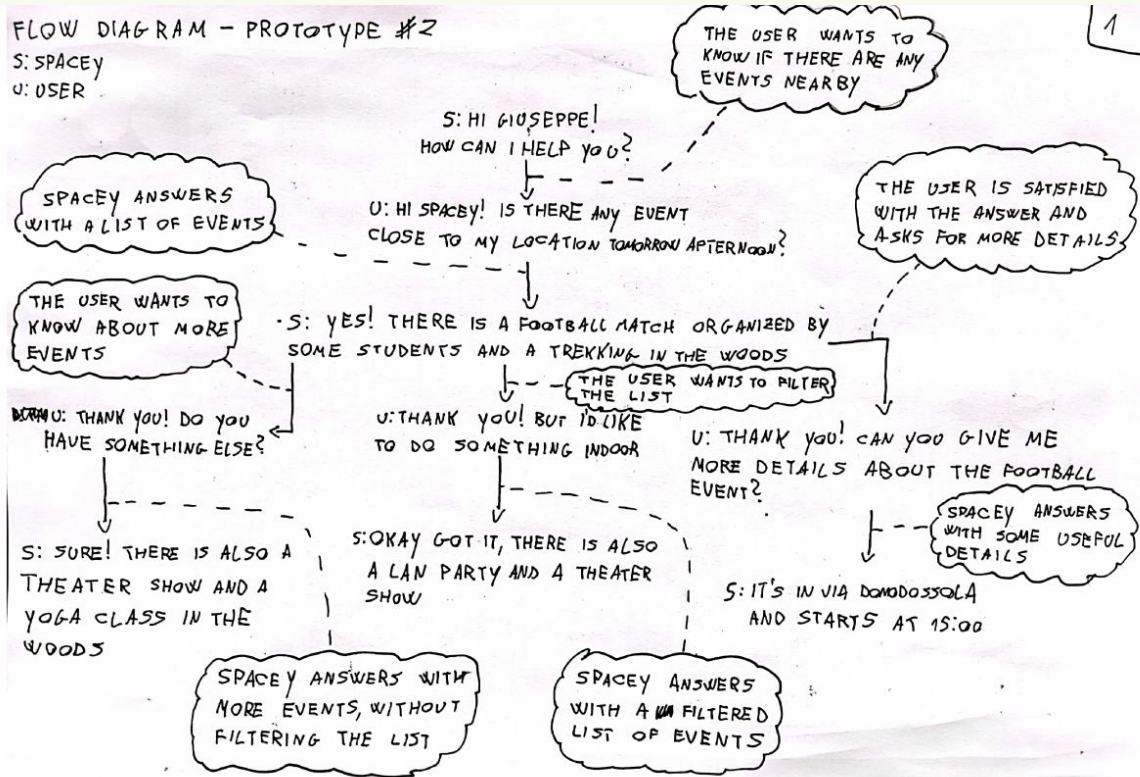 FLOW DIAGRAM - PROTOTYPE #2
S: SPACEY
U: USER
1
THE USER WANTS TO
KNOW IF THERE ARE ANY
EVENTS NEARBY
S: HI GIUSEPPE!
HOW CAN I HELP YOU?
SPACEY ANSWERS
WITH A LIST OF EVENTS
U: HI SPACEY! IS THERE ANY EVENT
CLOSE TO MY LOCATION TOMORROW AFTERNOON?
THE USER IS SATISFIED
WITH THE ANSWER AND
ASKS FOR MORE DETAILS
THE USER WANTS TO
KNOW ABOUT MORE
EVENTS
S: YES! THERE IS A FOOTBALL MATCH ORGANIZED BY
SOME STUDENTS AND A TREKKING IN THE WOODS
THE USER WANTS TO FILTER
THE LIST
U: THANK YOU! DO YOU
HAVE SOMETHING ELSE?
U: THANK YOU! BUT I'D LIKE
TO DO SOMETHING INDOOR
U: THANK YOU! CAN YOU GIVE ME
MORE DETAILS ABOUT THE FOOTBALL
EVENT?
SPACEY ANSWERS
WITH SOME USEFUL
DETAILS
S: SURE! THERE IS ALSO A
THEATER SHOW AND A
YOGA CLASS IN THE
WOODS
S: OKAY GOT IT, THERE IS ALSO
A LAN PARTY AND A THEATER
SHOW
S: IT'S IN VIA DOMODOSSOLA
AND STARTS AT 15:00
SPACEY ANSWERS WITH
MORE EVENTS, WITHOUT
FILTERING THE LIST
SPACEY ANSWERS
WITH A FILTERED
LIST OF EVENTS